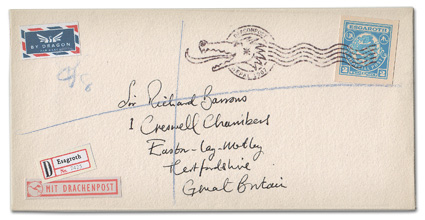 BY DRAGON
ESGAROTH
2 2
Sir Richard Barrons
1 Creswell Chambers
Easton-Lay-Motley
Hertfordshire
Great Britain
D Esgaroth
No.
MIT DRACHENPOST